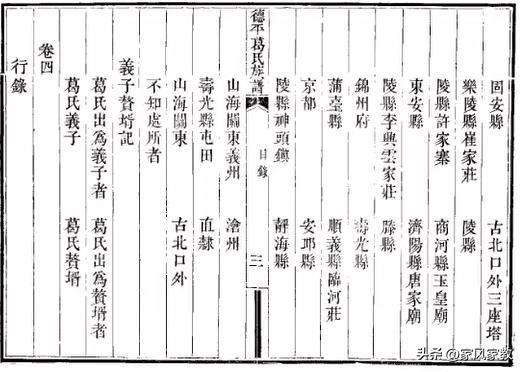 固安縣　古北口外三座塔
樂陵縣崔家莊　陵縣
陵縣許家寨　商河縣玉皇廟
東安縣　濟陽縣唐家廟
陵縣李興雲家莊　滕縣
錦州府　壽光縣
蒲臺縣　順義縣臨河莊
京都　安邱縣
陵縣神頭鎮　靜海縣
德平葛氏族譜　目錄　三
山海關東義州　滄州
壽光縣屯田　直隸
山海關東　古北口外
不知處所者
義子贅壻記
葛氏出爲義子者　葛氏出爲贅壻者
葛氏義子　葛氏贅壻
卷四
行錄
头条 @家风家教